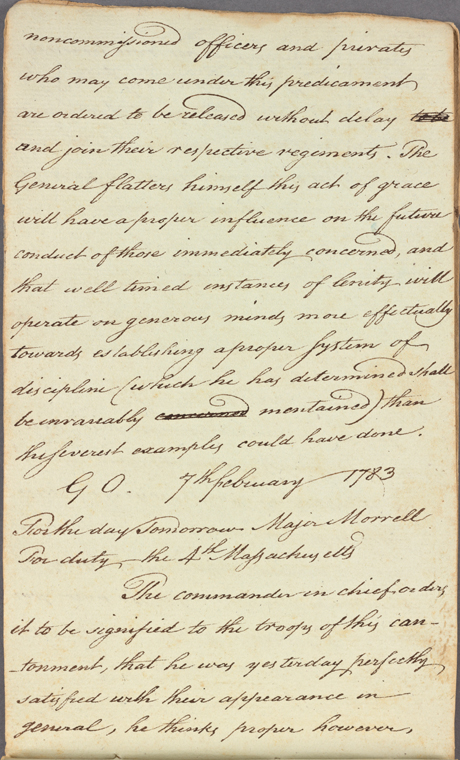 noncommissioned officers and privates
who may come under this predicament
are ordered to be released without delay to be
and join their respective regiments. The
General flatters himself this act of grace
will have a proper influence on the future
conduct of those immediately concerned, and
that well timed instances of lenity will
operate on generous minds more effectually
towards establishing a proper System of
discipline (which he has determined shall
be invariably concerned mentained) than
the Severest examples could have done.
G O. 7th february 1783
For the day Tomorrow Major Morrell
For duty the 4th Massachusetts
The commander in chief orders
it to be signified to the troops of this can-
-tonment, that he was yesterday perfectly
satisfied with their appearance in
general, he thinks proper however,